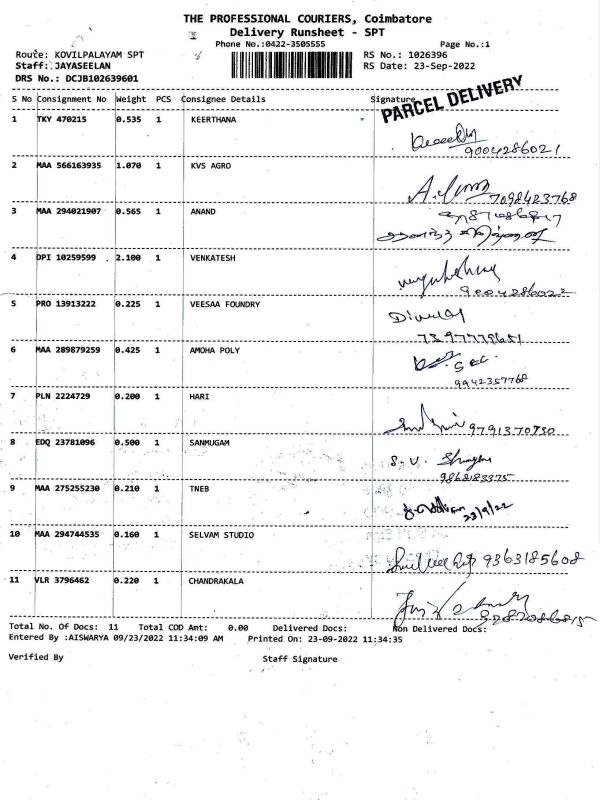 THE PROFESSIONAL COURIERS, Coimbatore
Delivery Runsheet - SPT
Phone No.:0422-3505555 Page No.:1
Route: KOVILPALAYAM SPT RS No.: 1026396
Staff: JAYASEELAN RS Date: 23-Sep-2022
DRS No.: DCJB102639601
PARCEL DELIVERY
S No Consignment No Weight PCS Consignee Details Signature
1 TKY 470215 0.535 1 KEERTHANA
9004286021
2 MAA 566163935 1.070 1 KVS AGRO
7098423768
3 MAA 294021907 0.565 1 ANAND
4 DPI 10259599 2.100 1 VENKATESH
9004286022
5 PRO 13913222 0.225 1 VEESAA FOUNDRY
6 MAA 289879259 0.425 1 AMOHA POLY
9942357768
7 PLN 2224729 0.200 1 HARI
9791370730
8 EDQ 23781096 0.500 1 SANMUGAM
S.U.
9868183375
9 MAA 275255230 0.210 1 TNEB
23/9/22
10 MAA 294744535 0.160 1 SELVAM STUDIO
9363185608
11 VLR 3796462 0.220 1 CHANDRAKALA
Total No. Of Docs: 11 Total COD Amt: 0.00 Delivered Docs: Non Delivered Docs:
Entered By :AISWARYA 09/23/2022 11:34:09 AM Printed On: 23-09-2022 11:34:35
Verified By Staff Signature